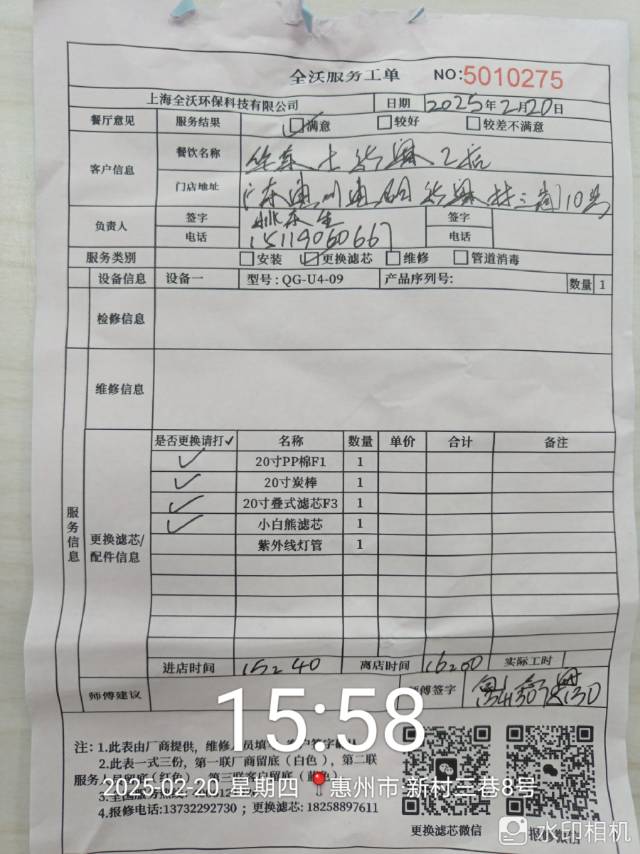 全沃服务工单 NO:5010275
上海全沃环保科技有限公司 日期 2025年2月20日
餐厅意见 服务结果 满意 较好 较差不满意
客户信息 餐饮名称
门店地址
负责人 签字 签字
电话 15119060667 电话
服务类别 安装 更换滤芯 维修 管道消毒
设备信息 设备一 型号:QG-U4-09 产品序列号: 数量 1
检修信息
维修信息
服务信息
更换滤芯/配件信息
是否更换请打✓ 名称 数量 单价 合计 备注
✓ 20寸PP棉F1 1
✓ 20寸炭棒 1
✓ 20寸叠式滤芯F3 1
✓ 小白熊滤芯 1
紫外线灯管 1
进店时间 15:40 离店时间 16:00 实际工时
师傅建议 师傅签字
15:58
注:1.此表由厂商提供,维修人员填写,客户签字确认
2.此表一式三份,第一联厂商留底(白色),第二联
服务人员留底(红色),第三联客户留底
2025-02-20 星期四 惠州市·新村三巷8号
4.报修电话:13732292730;更换滤芯:18258897611
更换滤芯微信 报修微信
水印相机